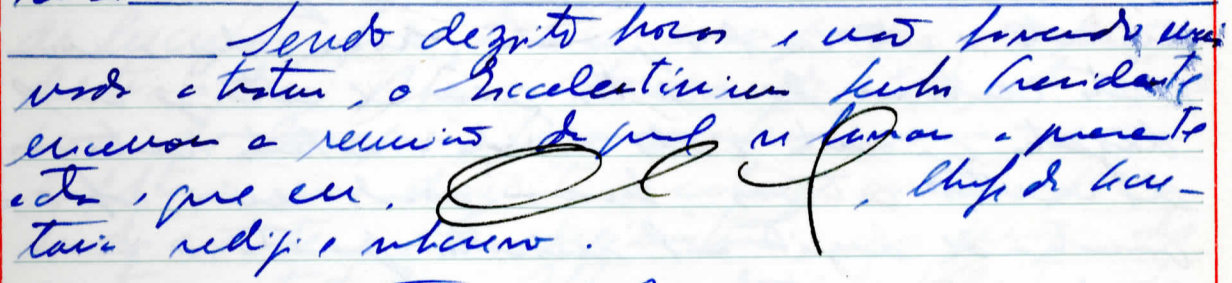 Sendo dezoito horas e não havendo mais
nada a tratar, o Excelentíssimo Senhor Presidente
encerrou a reunião da qual se lavrou a presente
acta, que eu, , Chefe da Secre-
taria redigi e subscrevo.